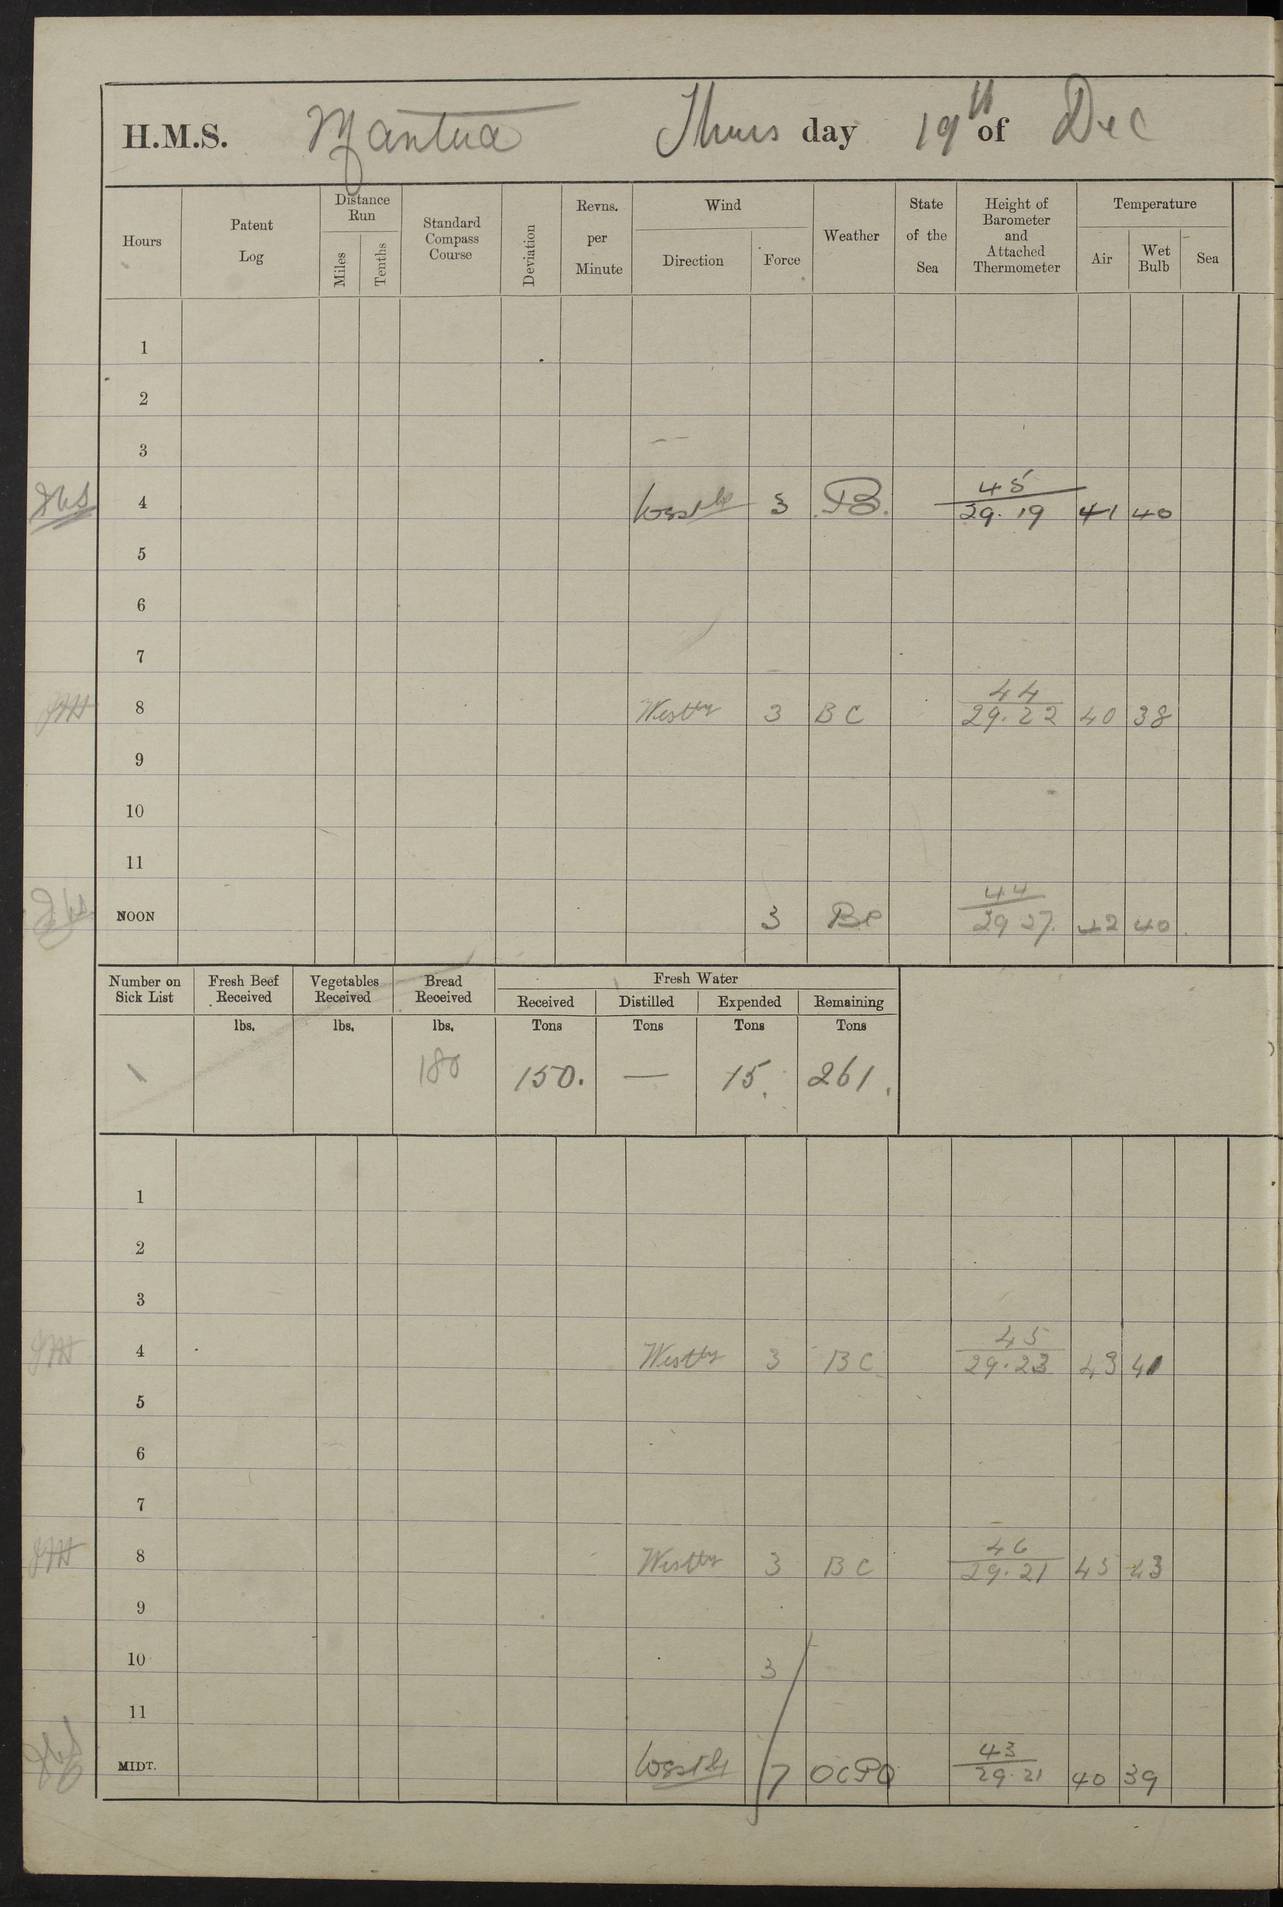 H.M.S. Mantua Thurs day 19th of Dec
Hours
Patent Log
Distance Run
Miles
Tenths
Standard Compass Course
Deviation
Revns. per Minute
Wind
Direction
Force
Weather
State of the Sea
Height of Barometer and Attached Thermometer
Temperature
Air
Wet Bulb
Sea
1
2
3
4 Westly 3 B. 45 / 29.19 41 40
5
6
7
8 Westly 3 BC 44 / 29.22 40 38
9
10
11
NOON 3 Bc 44 / 29 27. 42 40
Number on Sick List
Fresh Beef Received
Vegetables Received
Bread Received
Fresh Water
Received
Distilled
Expended
Remaining
lbs. lbs. lbs. Tons Tons Tons Tons
180 150. — 15. 261.
1
2
3
4 Westly 3 BC 45 / 29.23 43 41
5
6
7
8 Westly 3 BC 46 / 29.21 45 43
9
10 3
11
MIDT. Westly 7 OCPQ 43 / 29.21 40 39